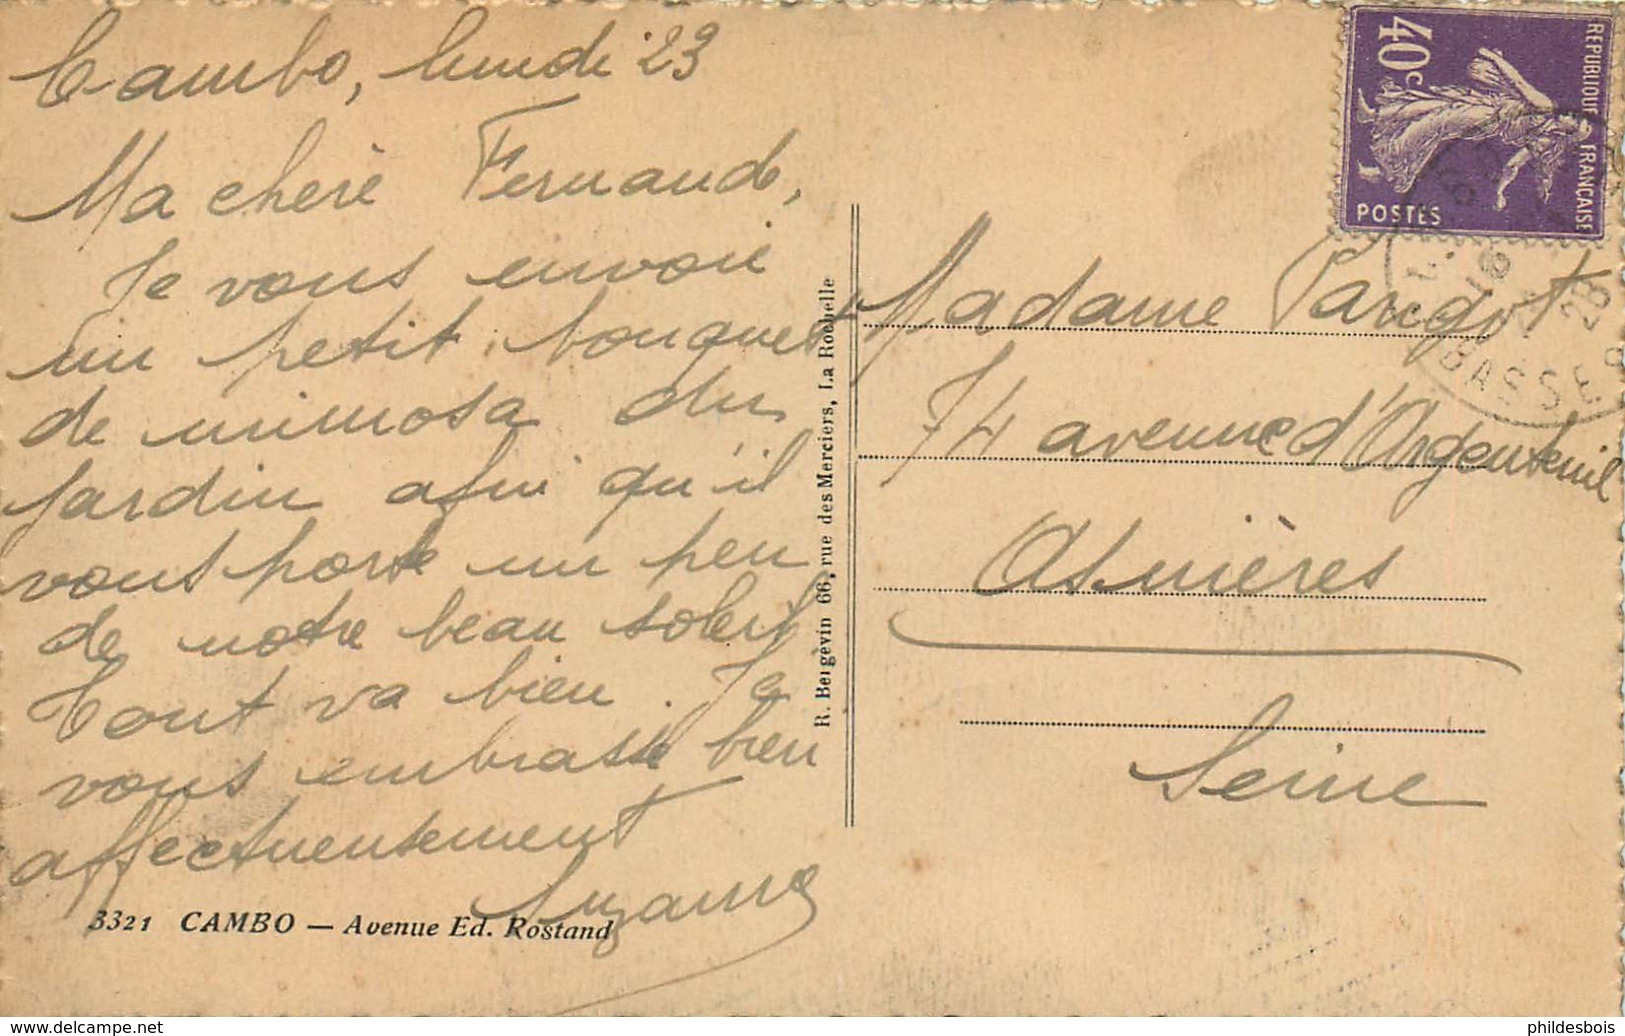 Cambo, lundi 23
Ma chère Fernande,
Je vous envoie
un petit bouquet
de mimosa du
jardin afin qu'il
vous porte un peu
de notre beau soleil
Tout va bien. Je
vous embrasse bien
affectueusement
Suzanne
3321 CAMBO — Avenue Ed. Rostand
R. Bergevin 66, rue des Merciers, La Rochelle
40c
REPUBLIQUE FRANÇAISE
POSTES
28
BASSES
Madame Parigot
74 avenue d'Argenteuil
Asnières
Seine
phildesbois